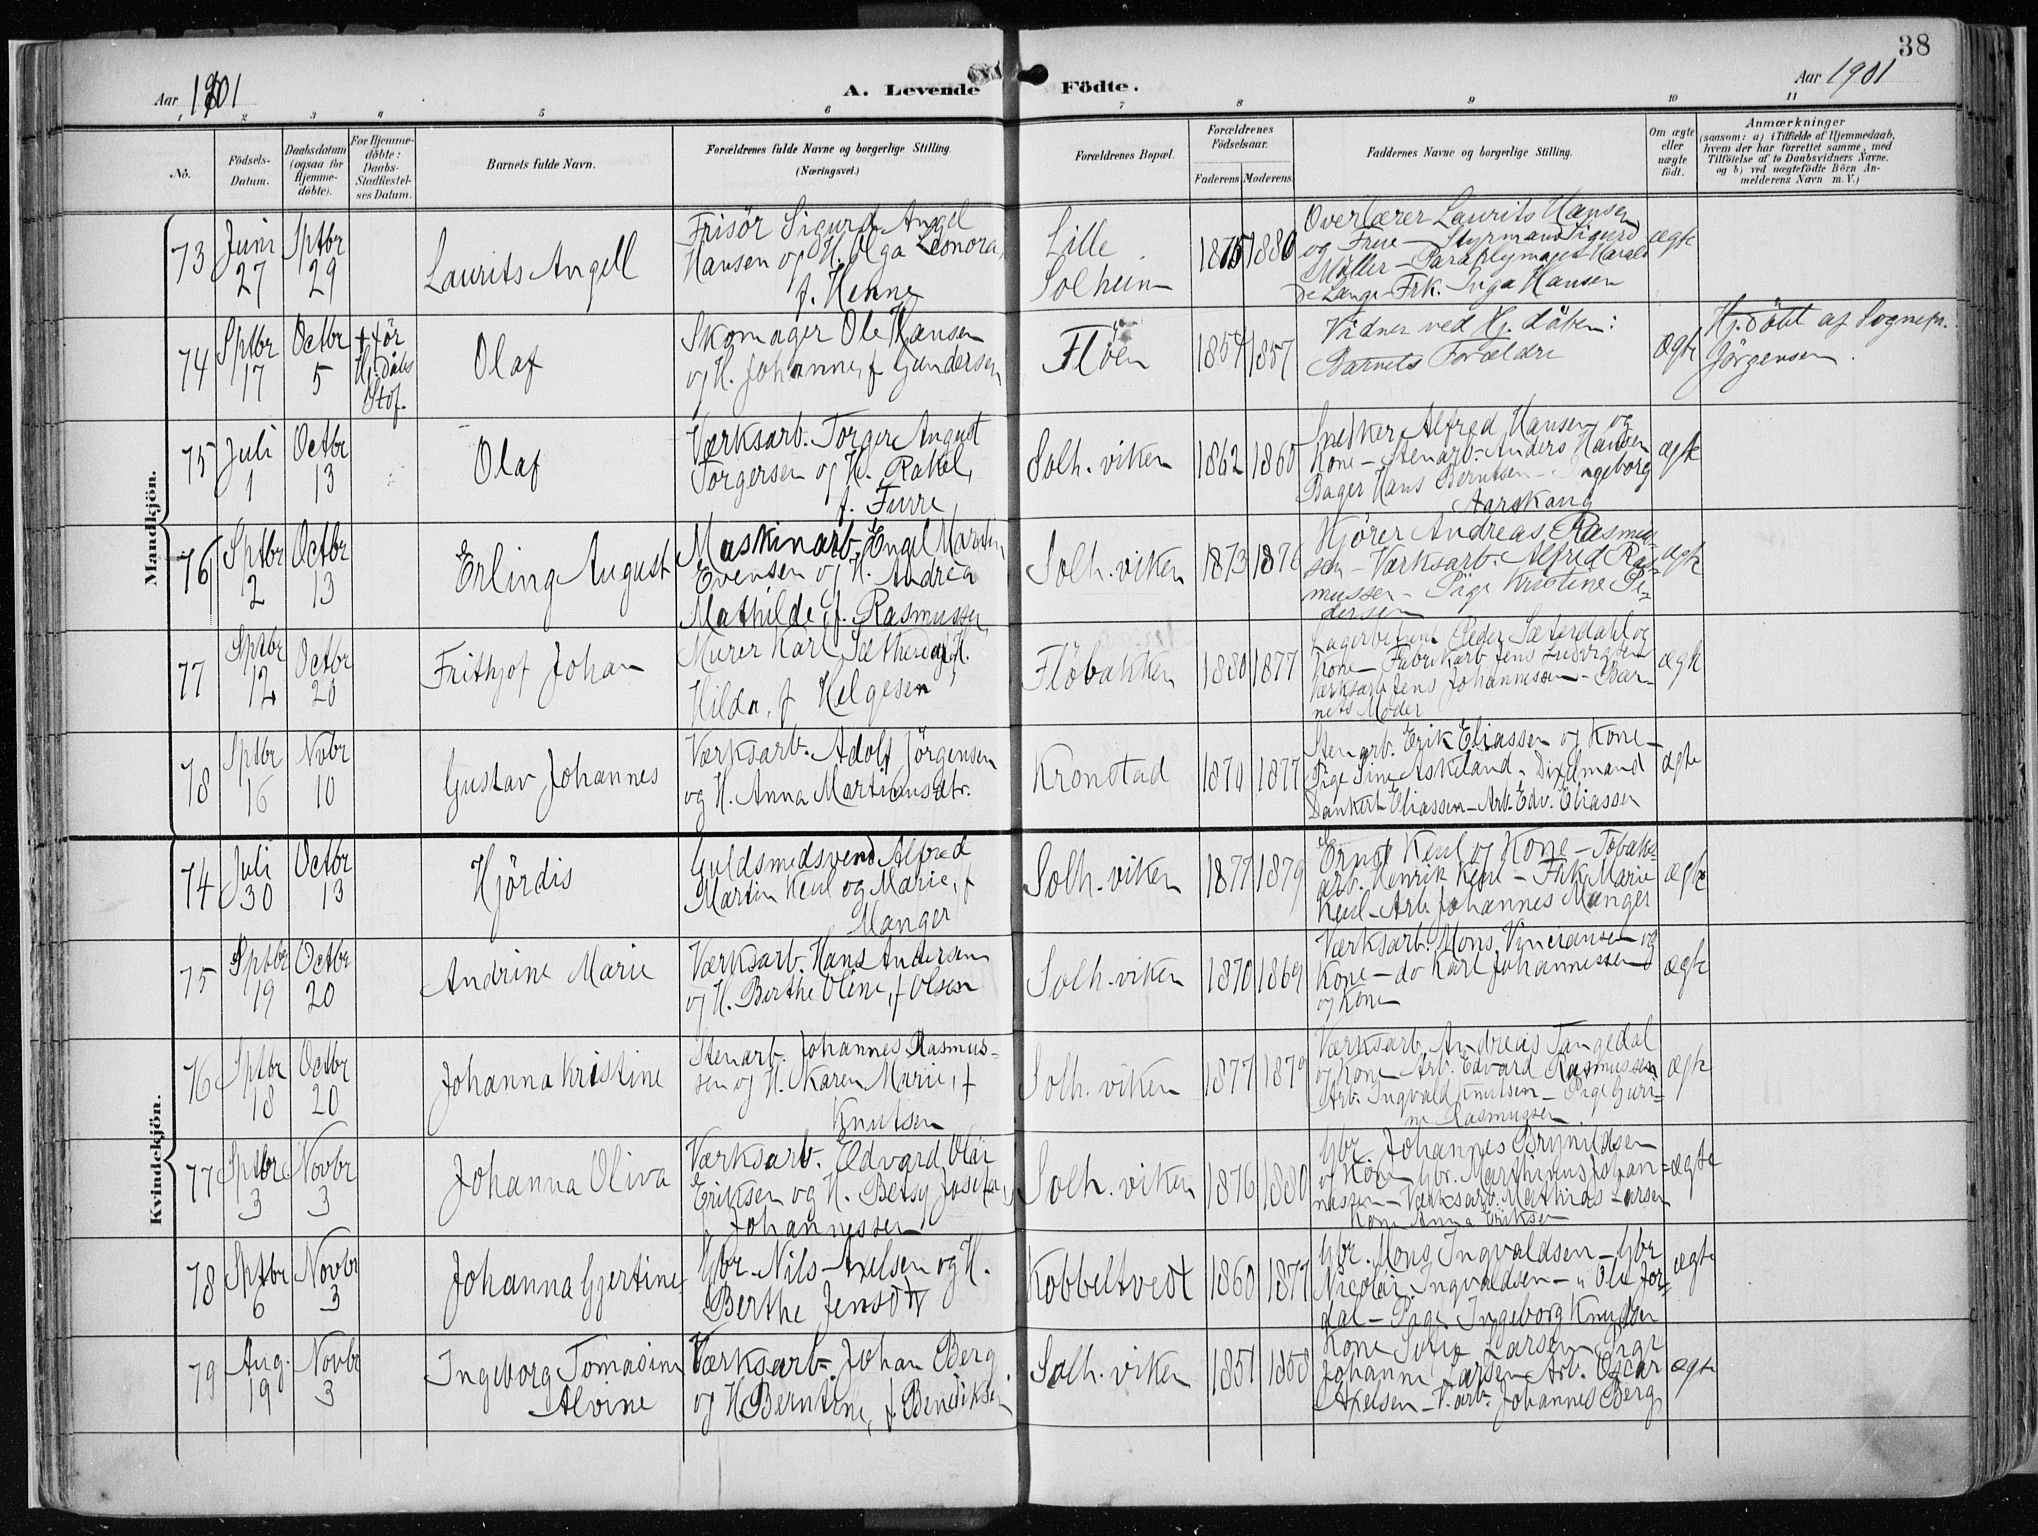 38
Aar 1901
A. Levende Födte.
Aar 1901
1 2 3 4 5 6 7 8 9 10 11
No.
Födsels-
Datum.
Daabsdatum
(ogsaa for
Hjemme-
döbte).
For Hjemme-
döbte:
Daabs-
Stadfæstel-
ses Datum.
Barnets fulde Navn.
Forældrenes fulde Navne og borgerlige Stilling.
(Næringsvei.)
Forældrenes Bopæl.
Forældrenes
Födselsaar.
Faderens. Moderens.
Faddernes Navne og borgerlige Stilling.
Om ægte
eller
uægte
födt.
Anmærkninger
(saasom: a) i Tilfælde af Hjemmedaab,
hvem der har forrettet samme, med
Tilföielse af to Daabsvidners Navne,
og b) ved uægtefödte Börn An-
melderens Navn m. V.)
Mandkjön.
73
Juni
27
Sptbr
29
Laurits Angell
Frisör Sigurd Angel
Hansen og H. Olga Leonora,
f. Henne
Lille
Solheim
1875
1880
Overlærer Laurits Hansen
og Frue – Styrmand Sigurd
Möller – Paraplymager Harald
de Lange – Frk. Inga Hansen
ægte
74
Sptbr
17
Octbr
5
† för
Hj. daabs
Stdf.
Olaf
Skomager Ole Hansen
og H. Johanne, f. Gundersen
Flöen
1854
1857
Vidner ved Hj. dåben:
Barnets Forældre
ægte
Hj. döbt af Sognepr.
Jörgensen.
75
Juli
1
Octbr
13
Olaf
Værksarb. Torger August
Torgersen og H. Rakel,
f. Furre
Solh. viken
1862
1860
Snekker Alfred Hansen og
Kone – Stenarb. Anders Hansen
Bager Hans Berntsen – Ingeborg
Aarskang
ægte
76
Sptbr
2
Octbr
13
Erling August
Maskinarb. Engel Martin
Evensen og H. Andrea
Mathilde, f. Rasmussen
Solh. viken
1873
1876
Kjörer Andreas Rasmus-
sen – Værksarb. Alfred Ras-
mussen – Pige Kristine Pe-
dersen
ægte
77
Sptbr
12
Octbr
20
Frithjof Johan
Murer Karl Sæthre og H.
Hilda, f. Helgesen
Flöbakken
1880
1877
Lagerbetjent Peder Sæterdahl og
Kone – Fabrikarb. Jens Ludvigsen
Værksarb. Jens Johannessen – Bar-
nets Moder
ægte
78
Sptbr
16
Novbr
10
Gustav Johannes
Værksarb. Adolf Jörgensen
og H. Anna Martinusdtr.
Kronstad
1870
1877
Stenarb. Erik Eliassen og Kone –
Pige Sine Askeland – Dixelmand
Dankert Eliassen – Arb. Edv. Eliassen
ægte
Kvindekjön.
74
Juli
30
Octbr
13
Hjördis
Guldsmedsvend Alfred
Martin Keul og Marie, f.
Manger
Solh. viken
1877
1879
Ernst Keul og Kone – Tobaks-
arb. Henrik Keul – Frk. Marie
Keul – Arb. Johannes Manger
ægte
75
Sptbr
19
Octbr
20
Andrine Marie
Værksarb. Hans Andersen
og H. Berthe Oline, f. Olsen
Solh. viken
1870
1869
Værksarb. Mons Vincransen og
Kone – do Karl Johannessen
og Kone
ægte
76
Sptbr
18
Octbr
20
Johanna Kristine
Stenarb. Johannes Rasmus-
sen og H. Karen Marie, f.
Knutsen
Solh. viken
1877
1879
Værksarb. Andreas Tangedal
og Kone – Arb. Edvard Rasmussen
Arb. Ingvald Knutsen – Pige Guri-
ne Rasmussen
ægte
77
Sptbr
3
Novbr
3
Johanna Oliva
Værksarb. Edvard Olai
Eriksen og H. Betsy Josefa,
Johannessen
Solh. viken
1876
1880
Gbr. Johannes Brynildsen
og Kone – Gbr. Marthinus Johan-
nessen – Værksarb. Mathias Larsen
Kone Anna Eriksen
ægte
78
Sptbr
6
Novbr
3
Johanna Gjertine
Gbr. Nils Axelsen og H.
Berthe Jensdtr
Kobbeltvedt
1860
1877
Gbr. Mons Ingvaldsen – Gbr
Nicolai Ingvaldsen – " Ole Jor-
dal – Pige Ingeborg Knudsen
ægte
79
Aug.
19
Novbr
3
Ingeborg Tomasine
Alvine
Værksarb. Johan Berg
og H. Berntine, f. Bendiksen
Solh. viken
1851
1858
Kone Sofie Larsen – Pige
Johanne Larsen – Arb. Oscar
Axelsen – V.arb. Johannes Berg
ægte